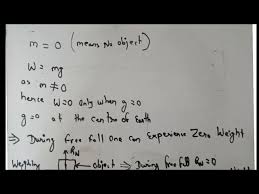 m = 0 (means No object)
W = mg
as m ≠ 0
hence W=0 only when g=0
g=0 at the centre of Earth
⇒ During free fall one can Experience Zero Weight
RN
Weighing
object ⇒ During free fall RN=0